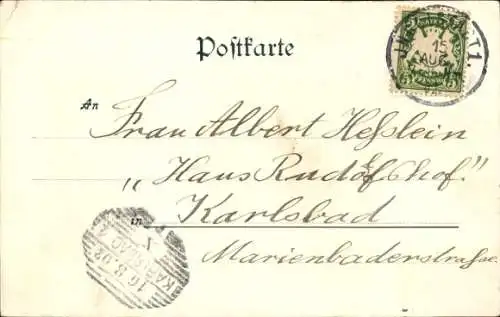 Postkarte
15
AUG
5 5
An
Frau Albert Hesslein
„Haus Rudolfshof."
in
Karlsbad
Marienbaderstrasse
16.8.02
KARLSBAD